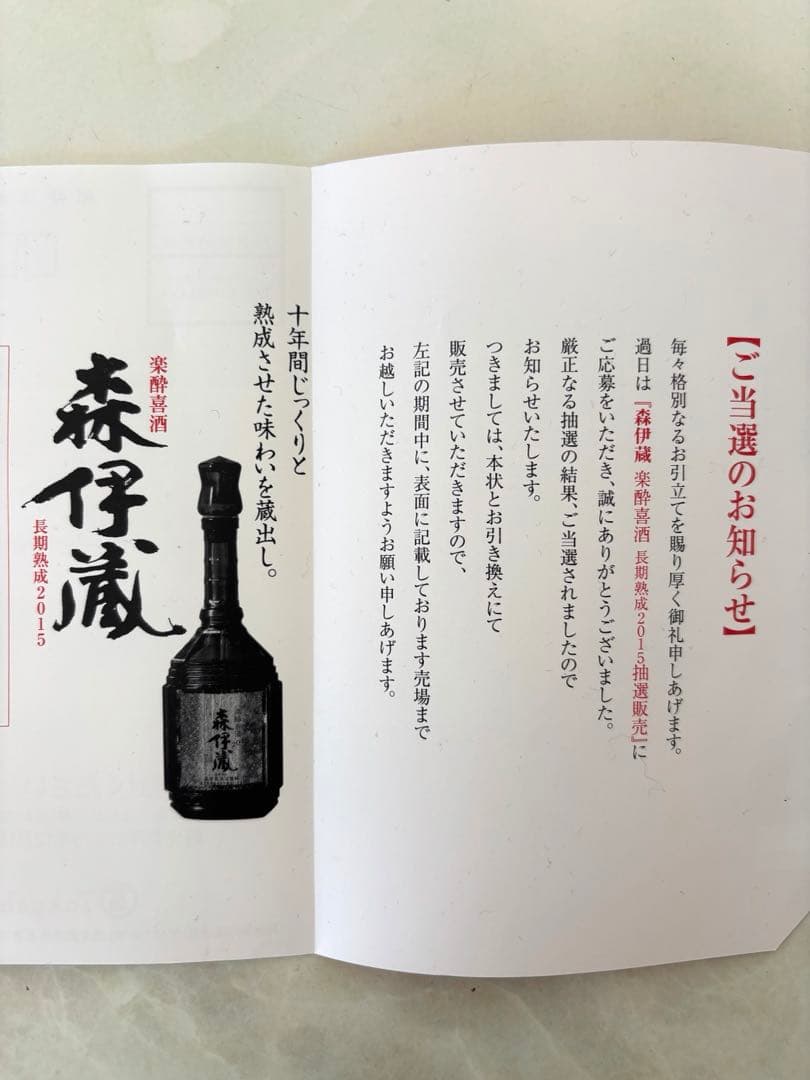 【ご当選のお知らせ】
毎々格別なるお引立てを賜り厚く御礼申しあげます。
過日は『森伊蔵 楽酔喜酒 長期熟成2015抽選販売』に
ご応募をいただき、誠にありがとうございました。
厳正なる抽選の結果、ご当選されましたので
お知らせいたします。
つきましては、本状とお引き換えにて
販売させていただきますので、
左記の期間中に、表面に記載しております売場まで
お越しいただきますようお願い申しあげます。
十年間じっくりと
熟成させた味わいを蔵出し。
楽酔喜酒
森伊蔵
長期熟成2015
森伊蔵